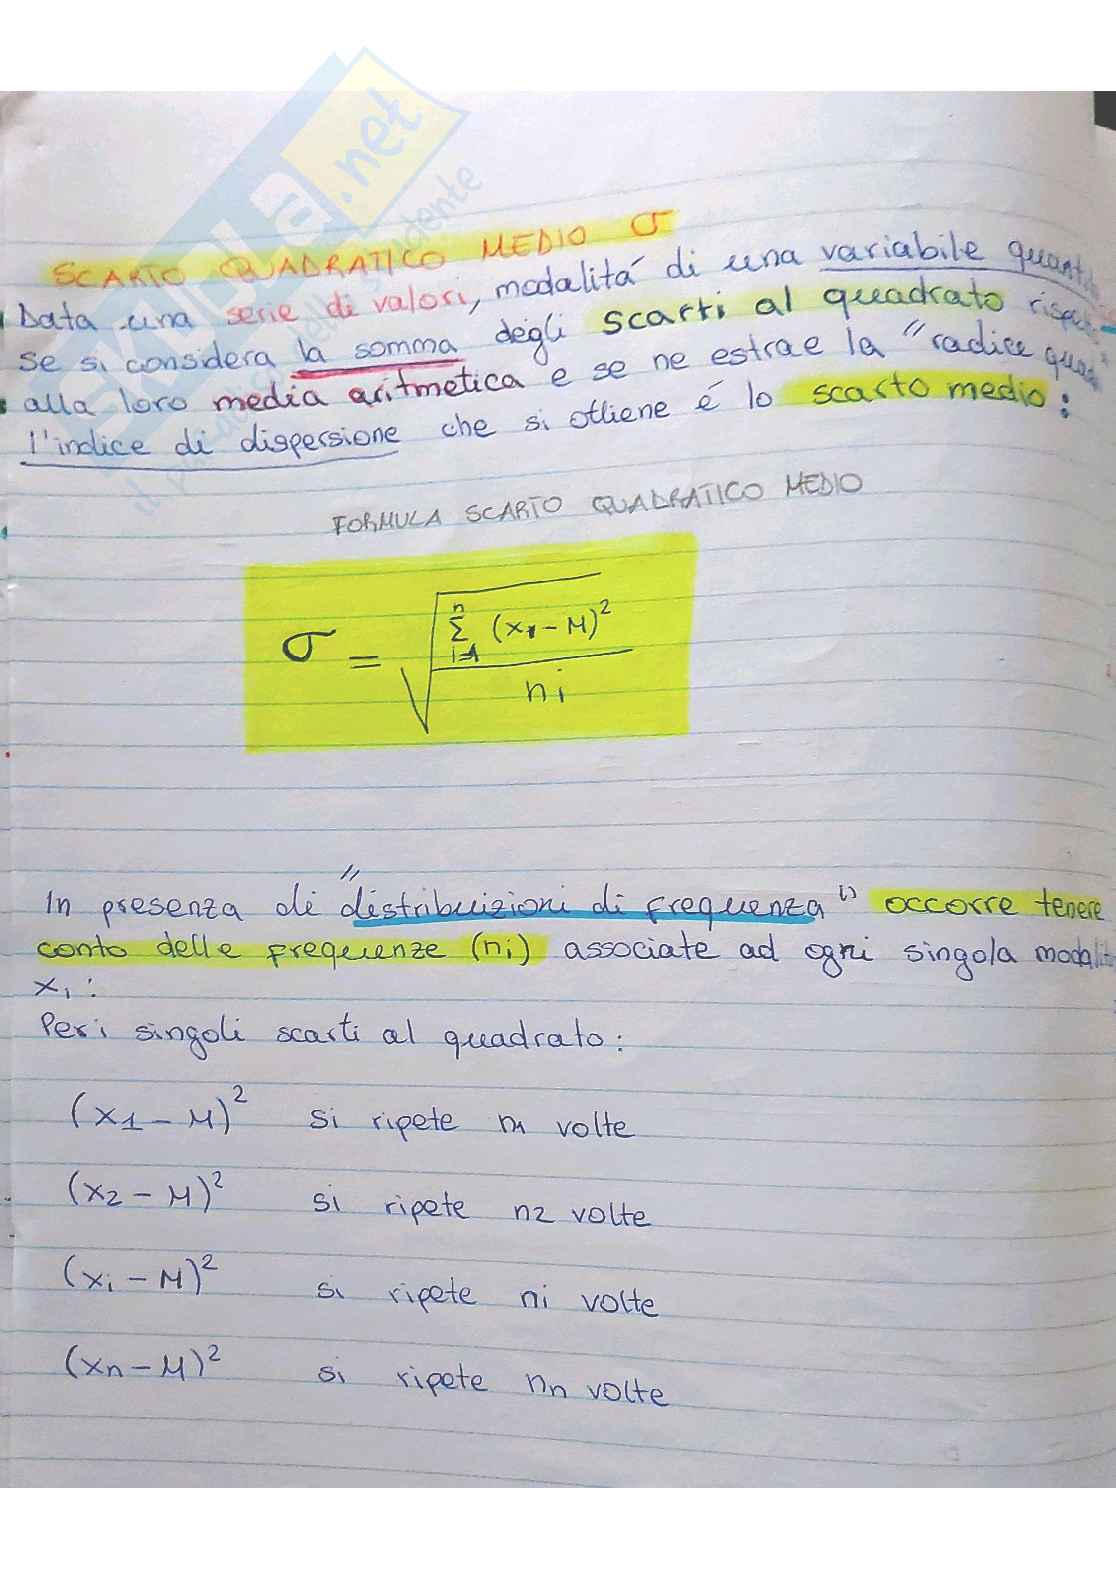 SKUOLA.net
SCARTO QUADRATICO MEDIO σ
Data una serie di valori, modalitá di una variabile
se si considera la somma degli scarti al quadrato
alla loro media aritmetica e se ne estrae la "radice
l'indice di dispersione che si ottiene é lo scarto medio:
FORMULA SCARTO QUADRATICO MEDIO
σ = √(Σ i=1 n (x1 - M)² / ni)
In presenza di "distribuizioni di frequenza" occorre tenere
conto delle frequenze (ni) associate ad ogni singola
xi:
Per i singoli scarti al quadrato:
(x1 - M)² si ripete n1 volte
(x2 - M)² si ripete n2 volte
(xi - M)² si ripete ni volte
(xn - M)² si ripete nn volte